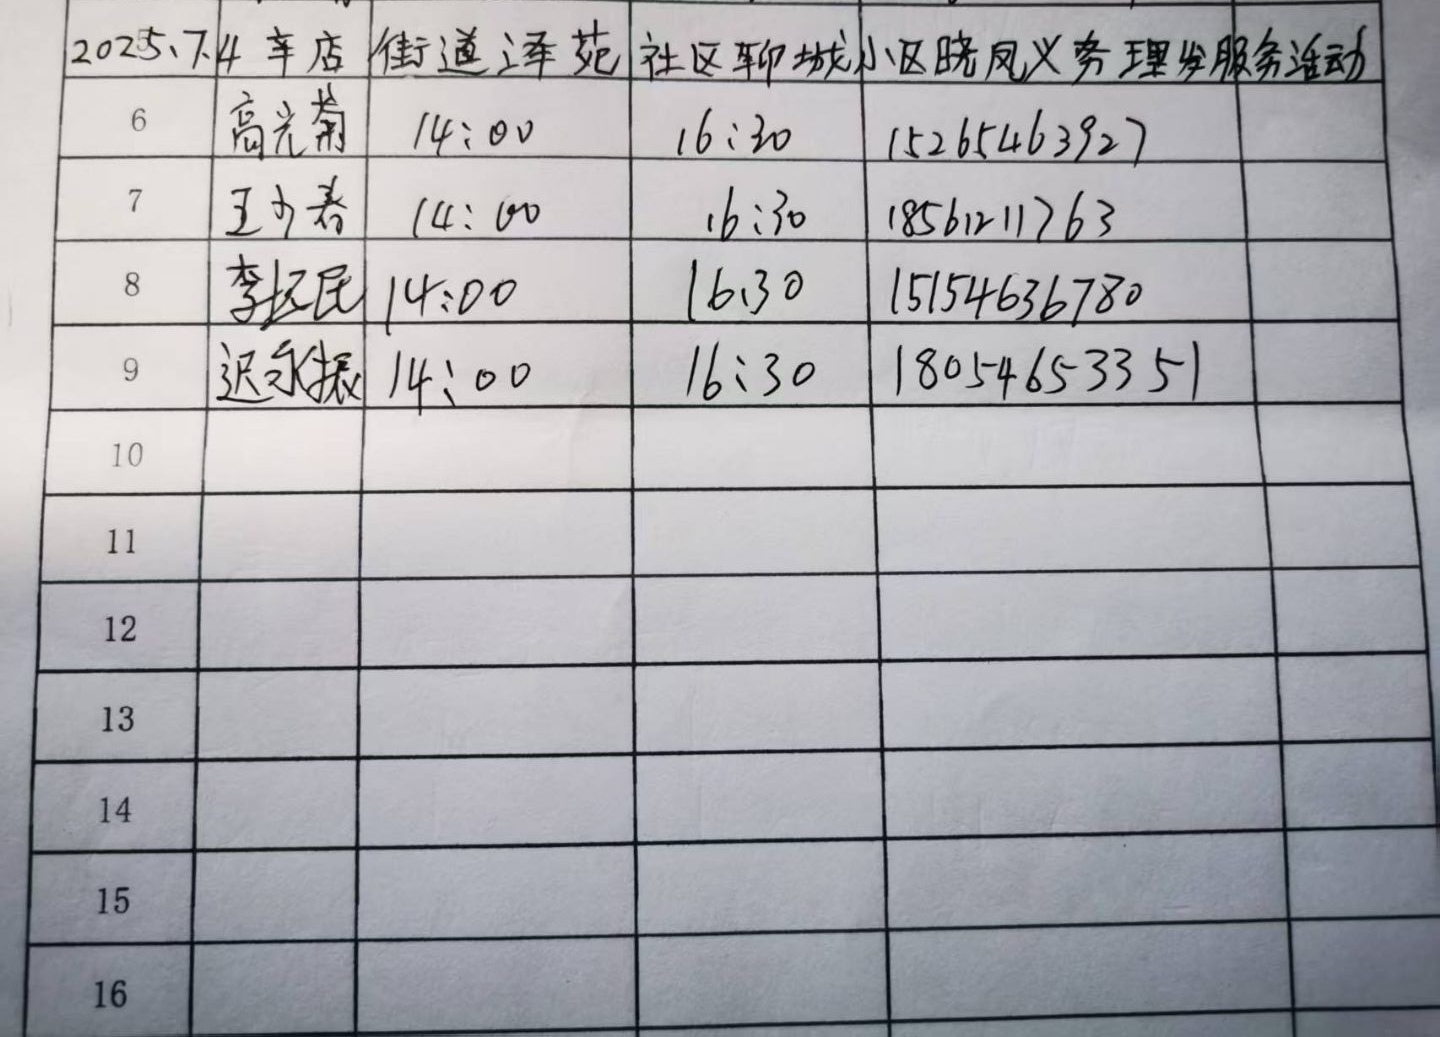 2025.7.4 车店街道泽苑社区聊城小区晓凤义务理发服务活动
6 高光菊 14:00 16:30 15265463927
7 王少春 14:00 16:30 18561211763
8 李振民 14:00 16:30 15154636780
9 迟永振 14:00 16:30 18054653351
10
11
12
13
14
15
16